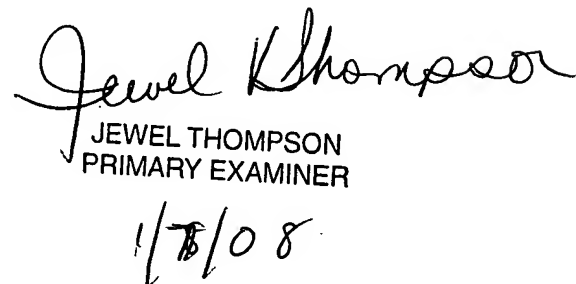 Jewel K Thompson
JEWEL THOMPSON
PRIMARY EXAMINER
1/8/08